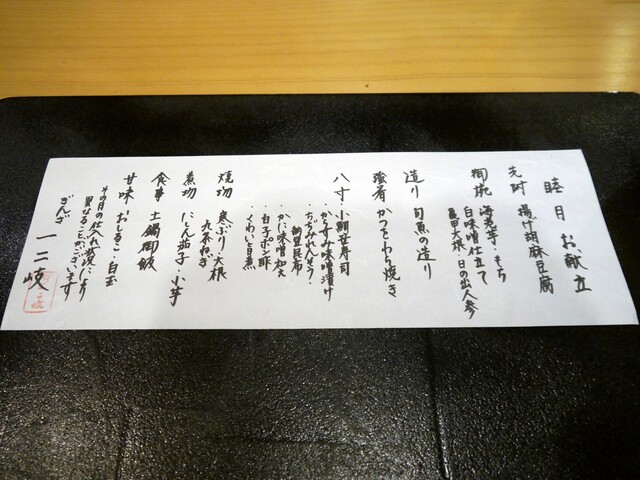 睦月 お献立
先附 揚げ胡麻豆腐
御椀 海老芋・もち
白味噌仕立て
亀甲大根・日の出人参
造り 旬魚の造り
強肴 かつをわら焼き
八寸 小鯛笹寿司
・からすみ味噌漬け
・ちぢみほうれんそう
・かに味噌和え
・白子ポン酢
・くわい旨煮
焼物 寒ぶり・大根
九条ねぎ
煮物 にしん茄子・小芋
食事 土鍋御飯
甘味 おしるこ・白玉
その日の仕入れ状況により
異なることがございます
ぎんざ
一二岐